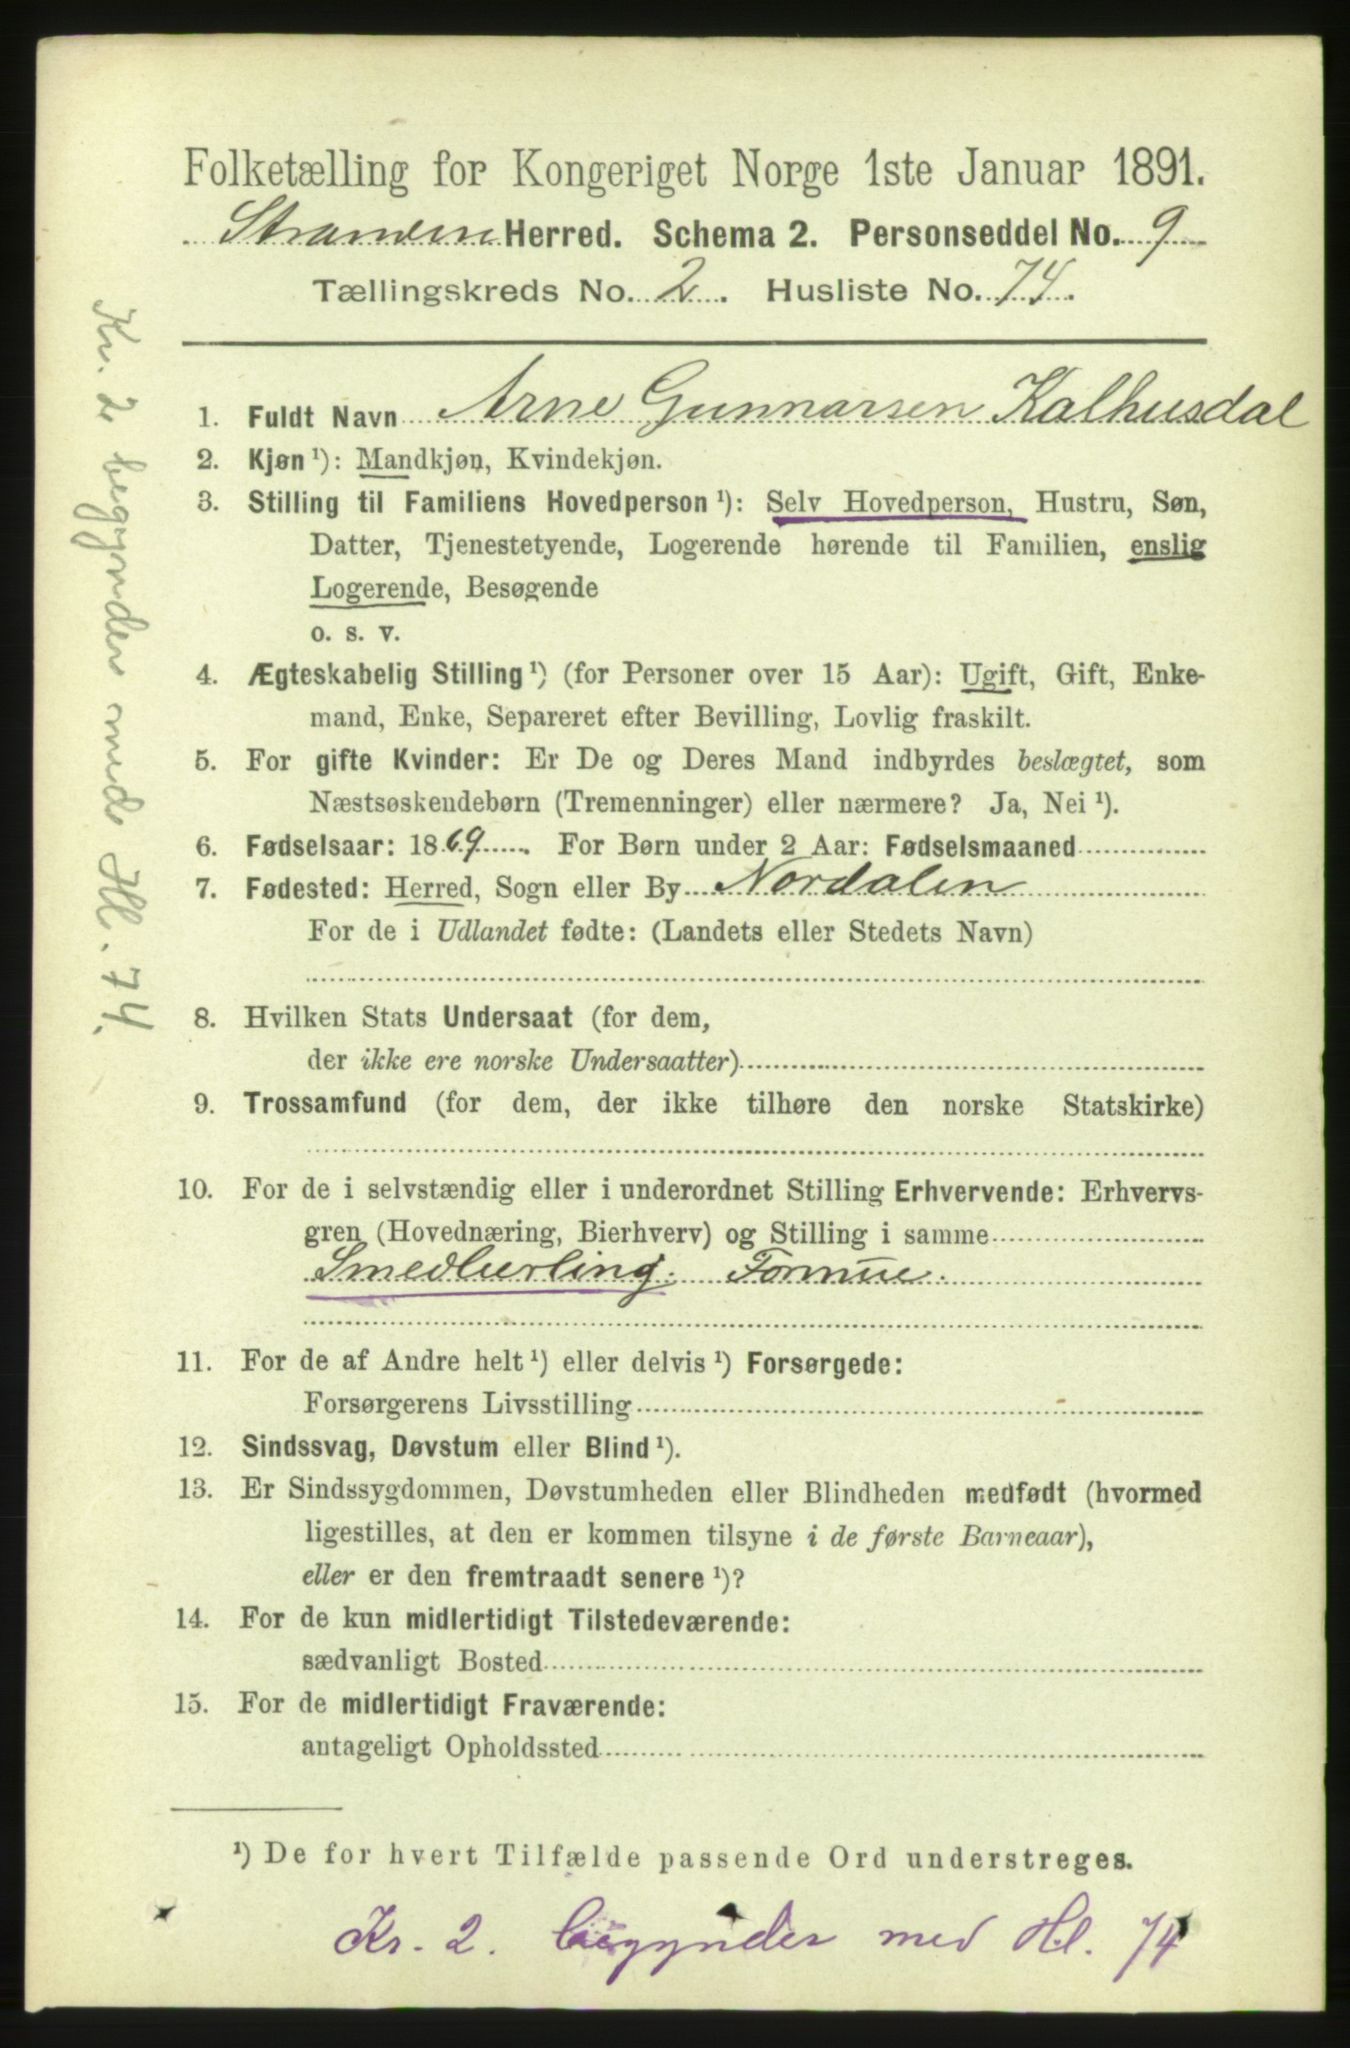 Folketælling for Kongeriget Norge 1ste Januar 1891.
Stranden Herred. Schema 2. Personseddel No. 9
Tællingskreds No. 2. Husliste No. 74.
Kr. 2 begynder med Hl. 74.
1. Fuldt Navn Arne Gunnarsen Kalhusdal
2. Kjøn ¹): Mandkjøn, Kvindekjøn.
3. Stilling til Familiens Hovedperson ¹): Selv Hovedperson, Hustru, Søn,
Datter, Tjenestetyende, Logerende hørende til Familien, enslig
Logerende, Besøgende
o. s. v.
4. Ægteskabelig Stilling ¹) (for Personer over 15 Aar): Ugift, Gift, Enke-
mand, Enke, Separeret efter Bevilling, Lovlig fraskilt.
5. For gifte Kvinder: Er De og Deres Mand indbyrdes beslægtet, som
Næstsøskendebørn (Tremenninger) eller nærmere? Ja, Nei ¹).
6. Fødselsaar: 1869. For Børn under 2 Aar: Fødselsmaaned
7. Fødested: Herred, Sogn eller By Nordalen
For de i Udlandet fødte: (Landets eller Stedets Navn)
8. Hvilken Stats Undersaat (for dem,
der ikke ere norske Undersaatter)
9. Trossamfund (for dem, der ikke tilhøre den norske Statskirke)
10. For de i selvstændig eller i underordnet Stilling Erhvervende: Erhvervs-
gren (Hovednæring, Bierhverv) og Stilling i samme
Smedlærling. Formue.
11. For de af Andre helt ¹) eller delvis ¹) Forsørgede:
Forsørgerens Livsstilling
12. Sindssvag, Døvstum eller Blind ¹).
13. Er Sindssygdommen, Døvstumheden eller Blindheden medfødt (hvormed
ligestilles, at den er kommen tilsyne i de første Barneaar),
eller er den fremtraadt senere ¹)?
14. For de kun midlertidigt Tilstedeværende:
sædvanligt Bosted
15. For de midlertidigt Fraværende:
antageligt Opholdssted
¹) De for hvert Tilfælde passende Ord understreges.
Kr. 2. begynder med Hl. 74